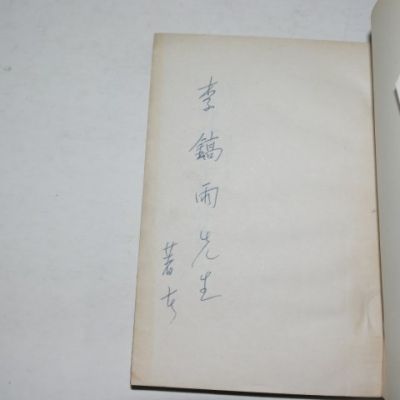 李鎬雨先生
著者